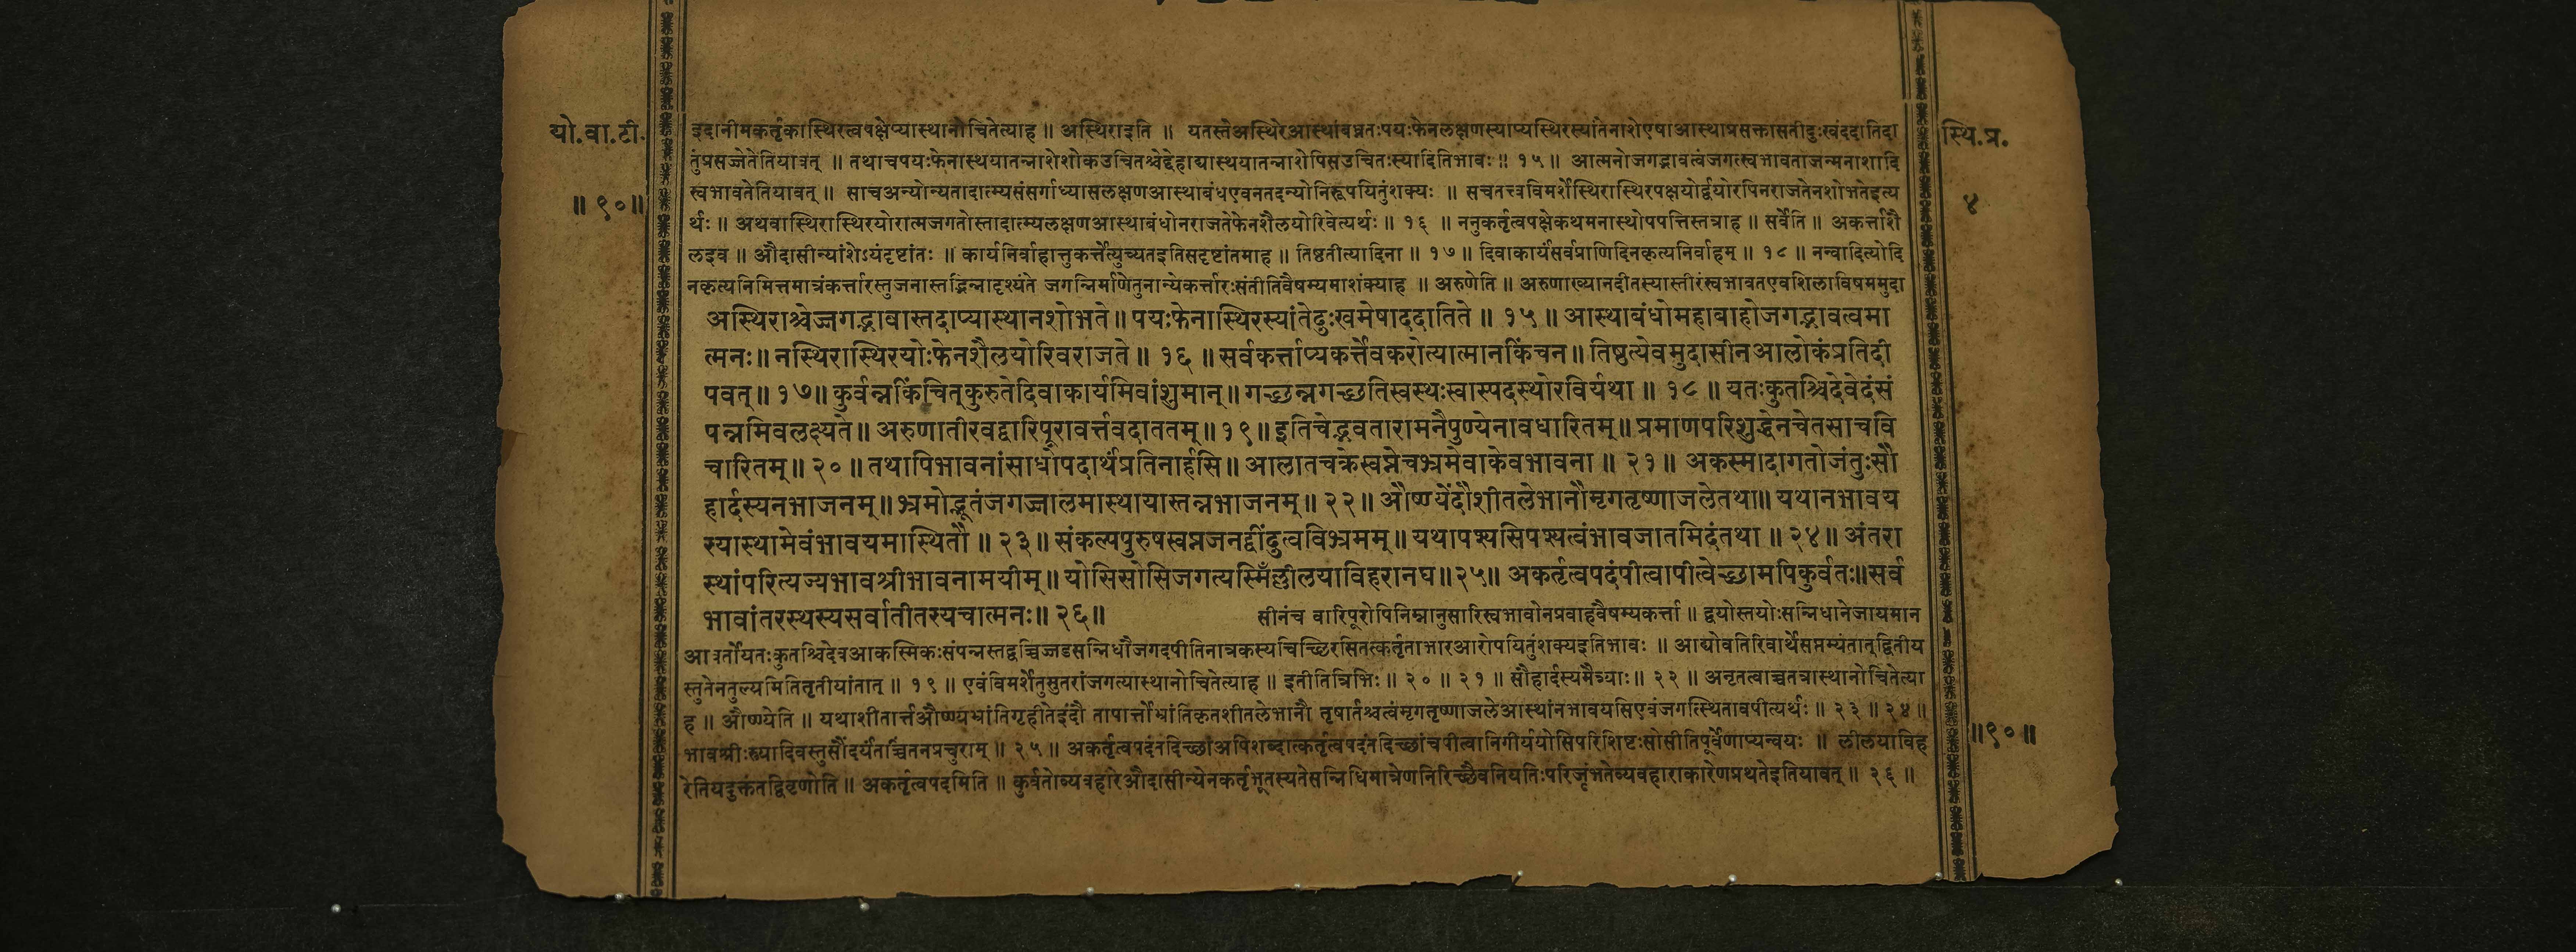 यो.वा.टी.
॥ ९० ॥
स्थि.प्र.
४
इदानीमकर्तृकास्थिरत्वपक्षेप्यास्थानोचितेत्याह ॥ अस्थिराइति ॥ यतस्तेअस्थिरेआस्थांबध्नतःपयःफेनलक्षणस्याप्यस्थिरस्यांतेनाशेएषाआस्थाप्रसक्तासतीदुःखंददातिदा
तुंप्रसज्जेतेतियावत् ॥ तथाचपयःफेनास्थयातन्नाशेशोकउचितश्चेद्देहाद्यास्थयातन्नाशेपिसउचितःस्यादितिभावः ॥ १५ ॥ आत्मनोजगद्भावत्वंजगत्स्वभावताजन्मनाशादि
स्वभावतेतियावत् ॥ साचअन्योन्यतादात्म्यसंसर्गाध्यासलक्षणआस्थाबंधएवनतदन्योनिरूपयितुंशक्यः ॥ सचतत्त्वविमर्शेस्थिरास्थिरपक्षयोर्द्वयोरपिनराजतेनशोभतेइत्य
र्थः ॥ अथवास्थिरास्थिरयोरात्मजगतोस्तादात्म्यलक्षणआस्थाबंधोनराजतेफेनशैलयोरिवेत्यर्थः ॥ १६ ॥ ननुकर्तृत्वपक्षेकथमनास्थोपपत्तिस्तत्राह ॥ सर्वेति ॥ अकर्त्ताशै
लइव ॥ औदासीन्यांशेऽयंदृष्टांतः ॥ कार्यनिर्वाहात्तुकर्त्तेत्युच्यतइतिसदृष्टांतमाह ॥ तिष्ठतीत्यादिना ॥ १७ ॥ दिवाकार्यंसर्वप्राणिदिनकृत्यनिर्वाहम् ॥ १८ ॥ नन्वादित्योदि
नकृत्यनिमित्तमात्रंकर्त्तारस्तुजनास्तद्भिन्नादृश्यंते जगन्निर्माणेतुनान्येकर्त्तारःसंतीतिवैषम्यमाशंक्याह ॥ अरुणेति ॥ अरुणाख्यानदीतस्यास्तीरंस्वभावतएवशिलाविषममुदा
अस्थिराश्चेज्जगद्भावास्तदाप्यास्थानशोभते ॥ पयःफेनास्थिरस्यांतेदुःखमेषाददातिते ॥ १५ ॥ आस्थाबंधोमहाबाहोजगद्भावत्वमा
त्मनः ॥ नस्थिरास्थिरयोःफेनशैलयोरिवराजते ॥ १६ ॥ सर्वकर्त्ताप्यकर्त्तेवकरोत्यात्मानकिंचन ॥ तिष्ठत्येवमुदासीनआलोकंप्रतिदी
पवत् ॥ १७ ॥ कुर्वन्नकिंचित्कुरुतेदिवाकार्यमिवांशुमान् ॥ गच्छन्नगच्छतिस्वस्थःस्वास्पदस्थोरविर्यथा ॥ १८ ॥ यतःकुतश्चिदेवेदंसं
पन्नमिवलक्ष्यते ॥ अरुणातीरवद्वारिपूरावर्त्तवदाततम् ॥ १९ ॥ इतिचेद्भवतारामनैपुण्येनावधारितम् ॥ प्रमाणपरिशुद्धेनचेतसाचवि
चारितम् ॥ २० ॥ तथापिभावनांसाधोपदार्थंप्रतिनार्हसि ॥ आलातचक्रेस्वप्नेचभ्रमेवाकेवभावना ॥ २१ ॥ अकस्मादागतोजंतुःसौ
हार्दस्यनभाजनम् ॥ भ्रमोद्भूतंजगज्जालमास्थायास्तन्नभाजनम् ॥ २२ ॥ औष्ण्येंदौशीतलेभानौमृगतृष्णाजलेतथा ॥ यथानभावय
स्यास्थामेवंभावयमास्थितौ ॥ २३ ॥ संकल्पपुरुषस्वप्नजनद्वींदुत्वविभ्रमम् ॥ यथापश्यसिपश्यत्वंभावजातमिदंतथा ॥ २४ ॥ अंतरा
स्थांपरित्यज्यभावश्रीभावनामयीम् ॥ योसिसोसिजगत्यस्मिँल्लीलयाविहरानघ ॥ २५ ॥ अकर्तृत्वपदंपीत्वापीत्वेच्छामपिकुर्वतः ॥ सर्व
भावांतरस्थस्यसर्वातीतस्यचात्मनः ॥ २६ ॥
सीनंच वारिपूरोपिनिम्नानुसारिस्वभावोनप्रवाहवैषम्यकर्त्ता ॥ द्वयोस्तयोःसन्निधानेजायमान
आवर्तोयतःकुतश्चिदेवआकस्मिकःसंपन्नस्तद्वच्चिज्जडसन्निधौजगदपीतिनात्रकस्यचिच्छिरसितत्कर्तृताभारआरोपयितुंशक्यइतिभावः ॥ आद्योवतिरिवार्थेसप्तम्यंतात्द्वितीय
स्तुतेनतुल्यमितितृतीयांतात् ॥ १९ ॥ एवंविमर्शेतुसुतरांजगत्यास्थानोचितेत्याह ॥ इतीतित्रिभिः ॥ २० ॥ २१ ॥ सौहार्दस्यमैत्र्याः ॥ २२ ॥ अनृतत्वाच्चतत्रास्थानोचितेत्या
ह ॥ औष्ण्येति ॥ यथाशीतार्त्तऔष्ण्यभ्रांतिगृहीतेइंदौ तापार्त्तोभ्रांतिकृतशीतलेभानौ तृषार्तश्चत्वंमृगतृष्णाजलेआस्थांनभावयसिएवंजगत्स्थितावपीत्यर्थः ॥ २३ ॥ २४ ॥
भावश्रीःस्त्र्यादिवस्तुसौंदर्यंताच्चिंतनप्रचुराम् ॥ २५ ॥ अकर्तृत्वपदंनदिच्छांअपिशब्दात्कर्तृत्वपदंनदिच्छांचपीत्वानिगीर्ययोसिपरिशिष्टःसोसीतिपूर्वेणाप्यन्वयः ॥ लीलयाविह
रेतियदुक्तंतद्विवृणोति ॥ अकर्तृत्वपदमिति ॥ कुर्वतोव्यवहारेऔदासीन्येनकर्तृभूतस्यतेसन्निधिमात्रेणनिरिच्छैवनियतिःपरिजृंभतेव्यवहाराकारेणप्रथतेइतियावत् ॥ २६ ॥
॥९०॥